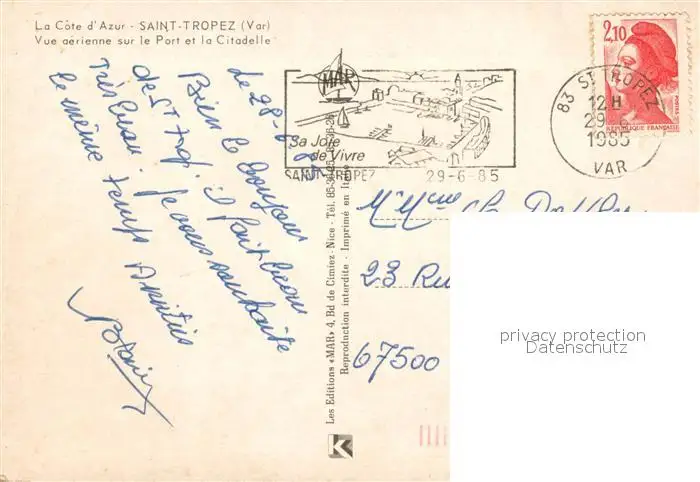 La Côte d'Azur - SAINT-TROPEZ (Var)
Vue aérienne sur le Port et la Citadelle
le 28-6-85
Bien le bonjour
de St Trop. il fait beau
Très beau. Je vous souhaite
le même temps Amitiés
MAR
Sa Joie
de Vivre
SAINT-TROPEZ 29-6-85
83 ST TROPEZ
12H
29-6
1985
VAR
2,10
POSTES
RÉPUBLIQUE FRANÇAISE
Les Editions «MAR» 4, Bd de Cimiez - Nice - Tél. 85-36-25 85-36-26
Reproduction interdite - Imprimé en Italie
M. Mme
23 Ru
67500
K
privacy protection
Datenschutz